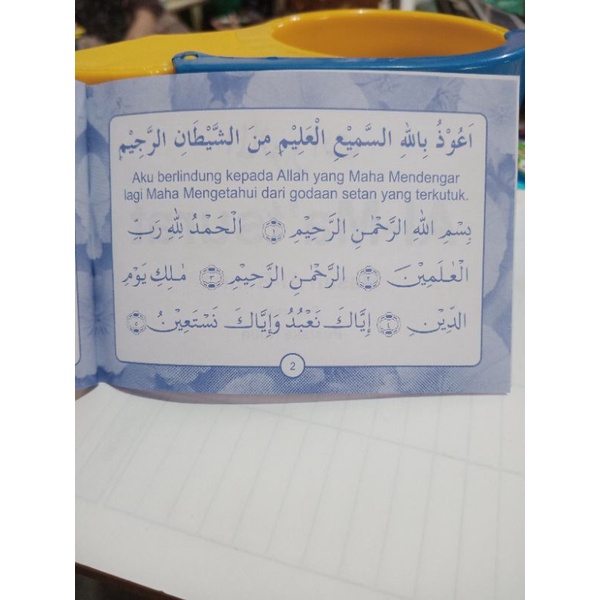 اَعُوْذُ بِاللهِ السَّمِيْعِ الْعَلِيْمِ مِنَ الشَّيْطَانِ الرَّجِيْمِ
Aku berlindung kepada Allah yang Maha Mendengar
lagi Maha Mengetahui dari godaan setan yang terkutuk.
بِسْمِ اللهِ الرَّحْمٰنِ الرَّحِيْمِ ۝١ الْحَمْدُ لِلّٰهِ رَبِّ
الْعٰلَمِيْنَ ۝٢ الرَّحْمٰنِ الرَّحِيْمِ ۝٣ مٰلِكِ يَوْمِ
الدِّيْنِ ۝٤ اِيَّاكَ نَعْبُدُ وَاِيَّاكَ نَسْتَعِيْنُ
2